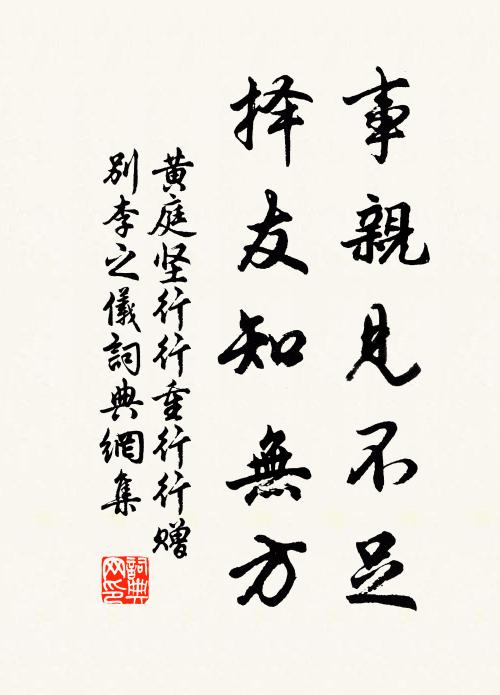 事親見不足
择友知無方
黄庭坚行行重行行赠
别李之儀詞典網集
詞典
网印